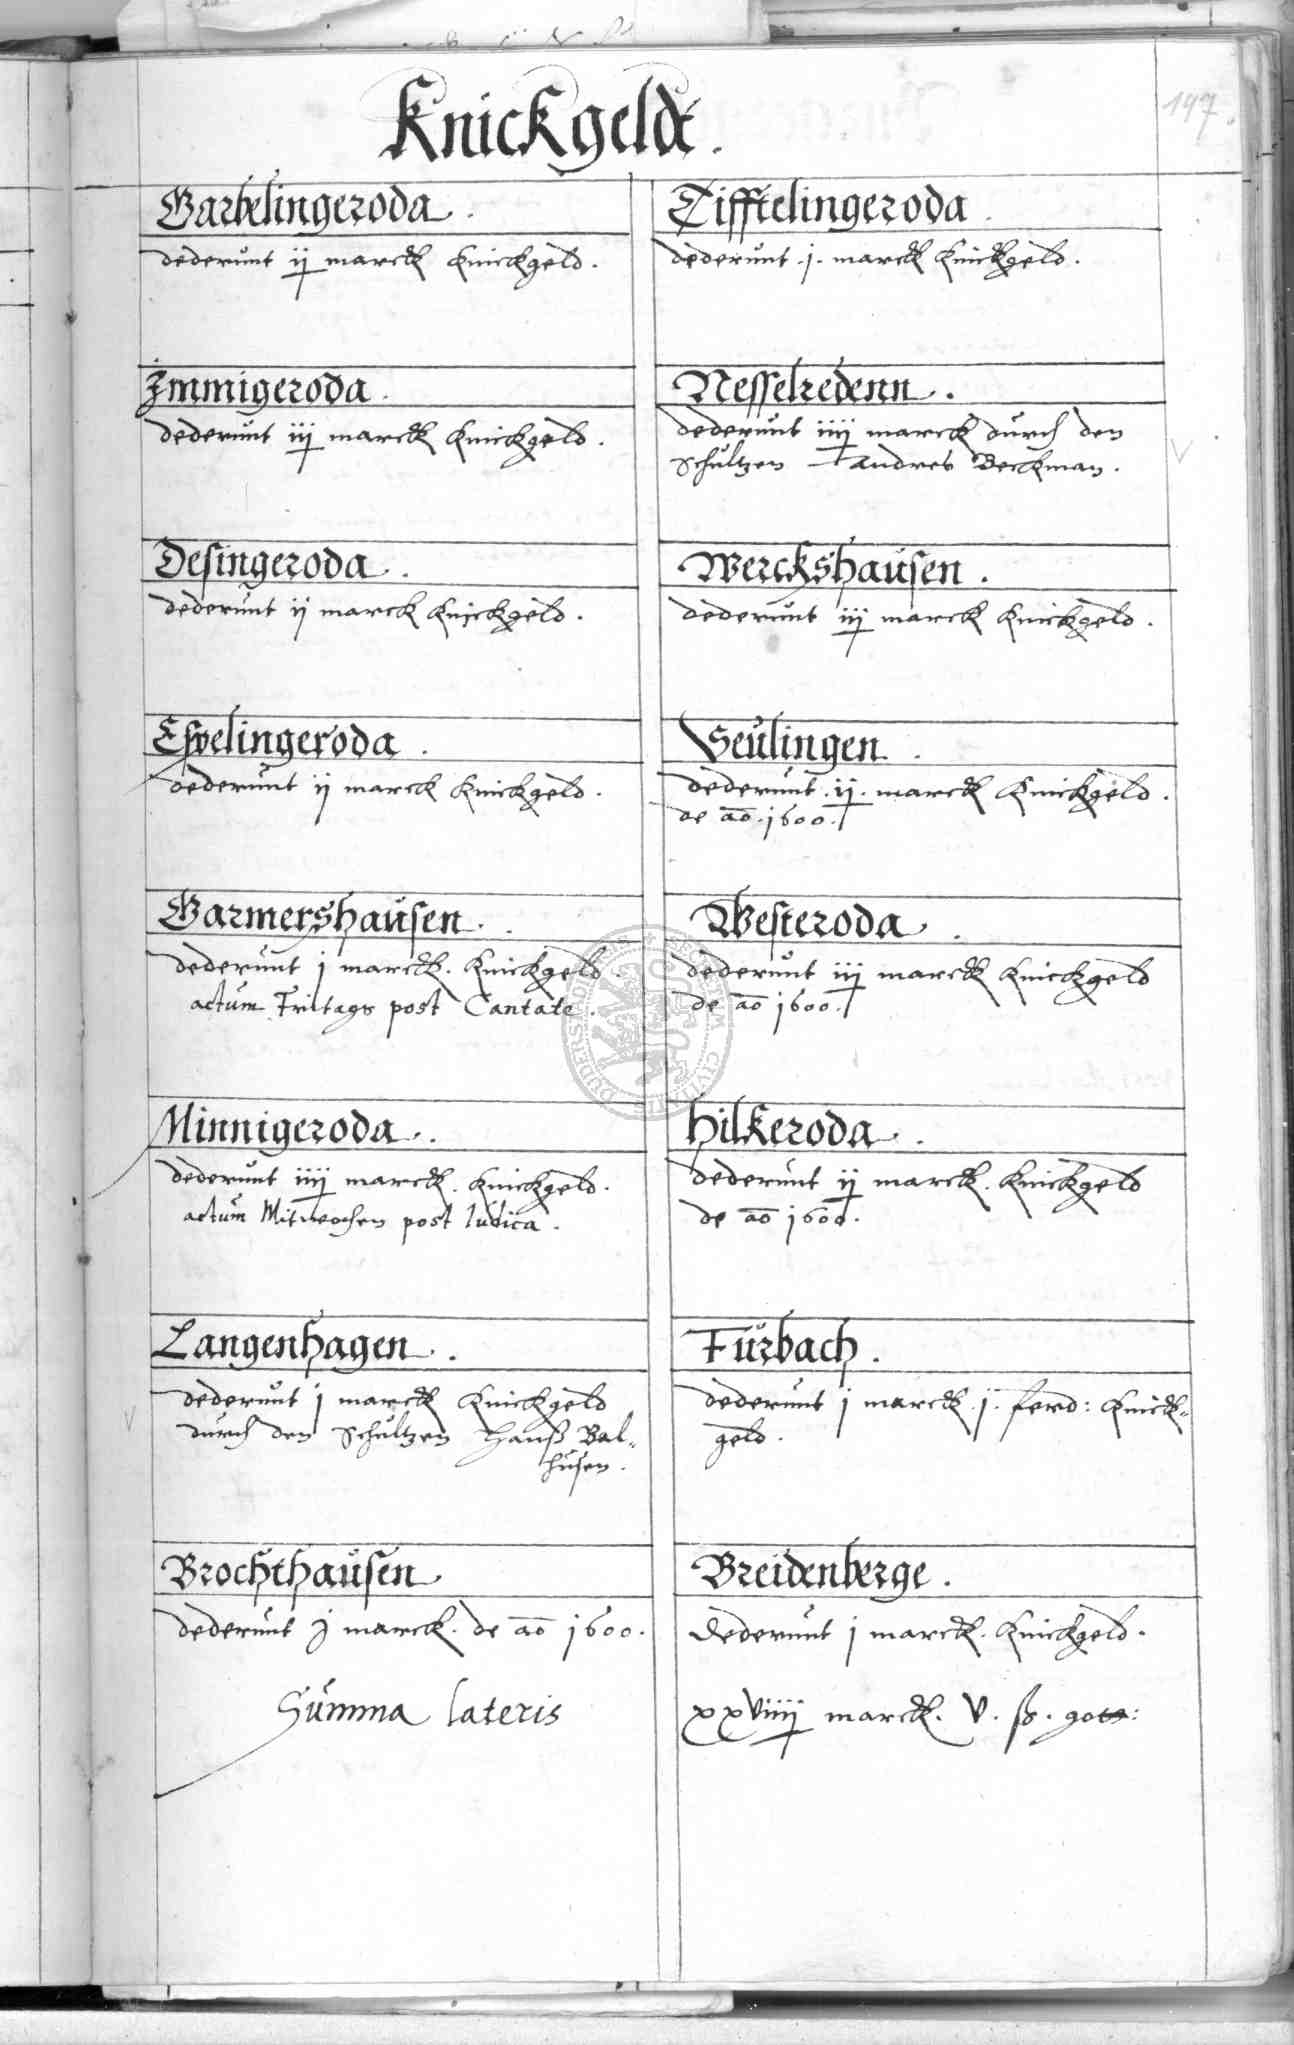 Knickgeldt.
197.
Garbelingeroda.
dederunt ij marck Knickgeld.
Immigeroda.
dederunt iij marck Knickgeld.
Desingeroda.
dederunt ij marck Knickgeld.
Esvelingeroda.
dederunt ij marck Knickgeld.
Garmershausen.
dederunt j marck. Knickgeld.
actum Fritags post Cantate.
Minnigeroda.
dederunt iiij marck. Knickgeld.
actum Mitwochen post Iudica.
Langenhagen.
dederunt j marck Knickgeld
durch den Schultzen Hanß Bal-
husen.
Brochthausen
dederunt j marck. de ao 1600.
Summa lateris
Tifftelingeroda.
dederunt .j. marck Knickgeld.
Nesselredenn.
dederunt iiij marck durch den
Schultzen Andres Beckman.
Werckshausen.
dederunt iij marck Knickgeld.
Seulingen.
dederunt .ij. marck Knickgeld.
de ao. 1600.
Westeroda.
dederunt iij marck Knickgeld
de ao 1600.
Hilkeroda.
dederunt ij marck. Knickgeld
de ao 1600.
Furbach.
dederunt j marck .j. ferd: Knick-
geld.
Breidenberge.
dederunt j marck. Knickgeld.
xxviiij marck. V. ß. gott: